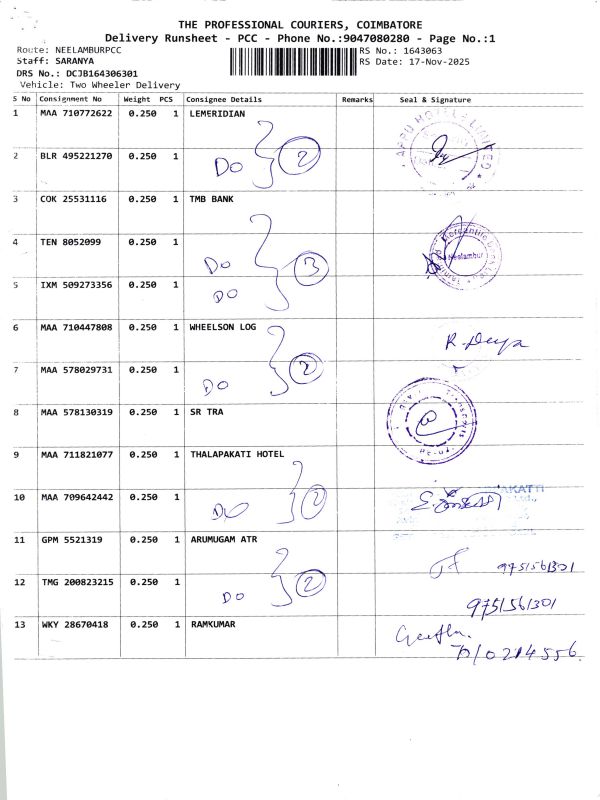 THE PROFESSIONAL COURIERS, COIMBATORE
Delivery Runsheet - PCC - Phone No.:9047080280 - Page No.:1
Route: NEELAMBURPCC
RS No.: 1643063
Staff: SARANYA
RS Date: 17-Nov-2025
DRS No.: DCJB164306301
Vehicle: Two Wheeler Delivery
S No Consignment No Weight PCS Consignee Details Remarks Seal & Signature
1 MAA 710772622 0.250 1 LEMERIDIAN
2 BLR 495221270 0.250 1 Do 2
3 COK 25531116 0.250 1 TMB BANK
Neelambur
4 TEN 8052099 0.250 1 Do 3
5 IXM 509273356 0.250 1 Do
6 MAA 710447808 0.250 1 WHEELSON LOG
7 MAA 578029731 0.250 1 Do 2
8 MAA 578130319 0.250 1 SR TRA
9 MAA 711821077 0.250 1 THALAPAKATI HOTEL
10 MAA 709642442 0.250 1 Do 2
11 GPM 5521319 0.250 1 ARUMUGAM ATR 9751561301
12 TMG 200823215 0.250 1 Do 2 9751561301
13 WKY 28670418 0.250 1 RAMKUMAR Geetha.